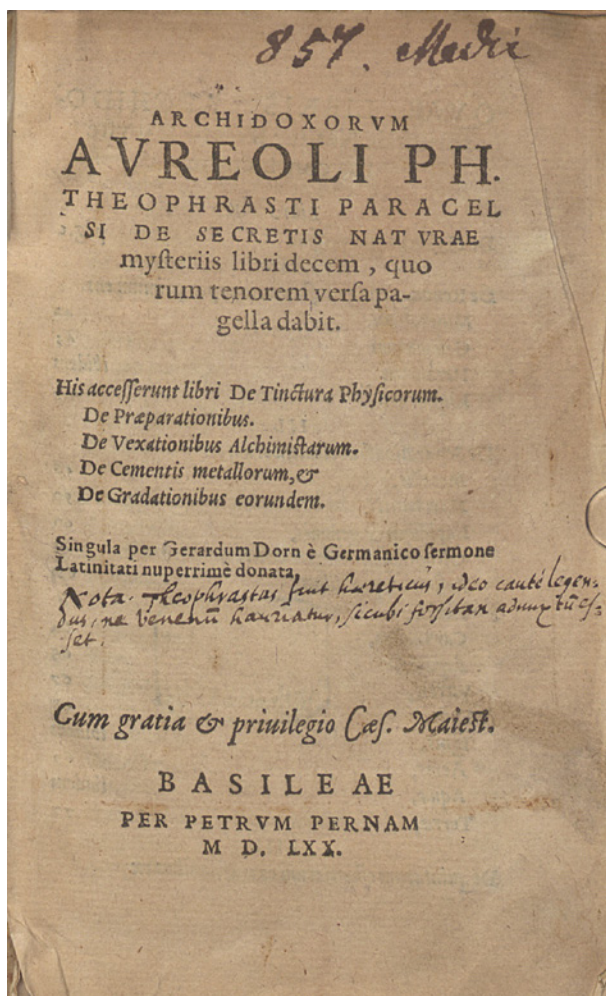 857. Medici
ARCHIDOXORVM
AVREOLI PH.
THEOPHRASTI PARACEL
SI DE SECRETIS NATVRAE
myſteriis libri decem, quo
rum tenorem verſa pa-
gella dabit.
His acceſſerunt libri De Tinctura Phyſicorum.
De Præparationibus.
De Vexationibus Alchimiſtarum.
De Cementis metallorum, &
De Gradationibus eorundem.
Singula per Gerardum Dorn è Germanico ſermone
Latinitati nuperrimè donata
Nota. Theophrastus fuit haereticus, ideo cautè legen-
dus, ne venenū hauriatur, sicubi forsitan adunctū es-
set.
Cum gratia & priuilegio Cæſ. Maieſt.
BASILEAE
PER PETRVM PERNAM
M D. LXX.